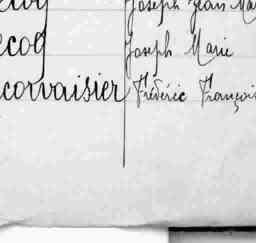 Joseph Jean
ecoq Joseph Marie
corvaisier Frédéric François